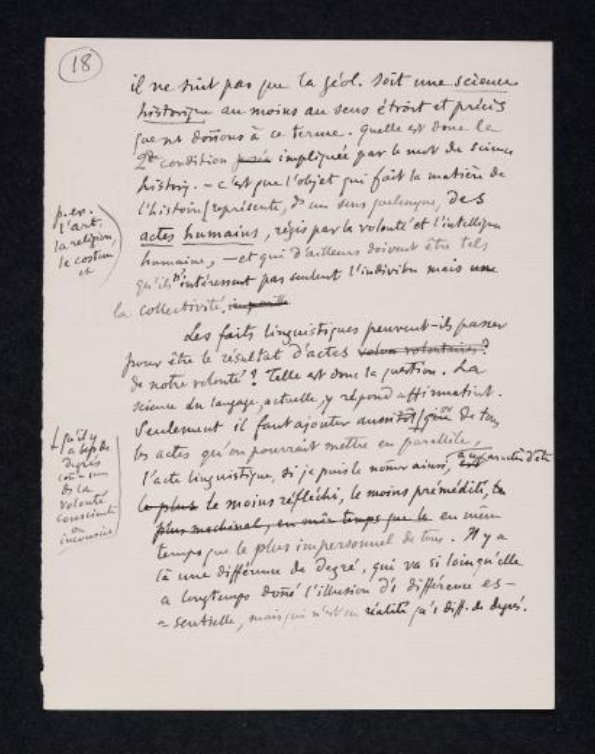 18
il ne suit pas que la géol. soit une science
historique au moins au sens étroit et précis
que ns donnons à ce terme. Quelle est donc la
2de condition impliquée par le mot de science
histориq. – c'est que l'objet qui fait la matière de
l'histoire représente, ds un sens quelconque, des
actes humains, régis par la volonté et l'intelligence
humaine, – et qui d'ailleurs doivent être tels
qu'ils n'intéressent pas seulent l'individu mais
la collectivité.
p. ex.
l'art.
la religion,
le costume
et
Les faits linguistiques peuvent-ils passer
pour être le résultat d'actes volon volontaires?
de notre volonté? Telle est donc la question. La
science du langage, actuelle, y répond affirmativt.
Seulement il faut ajouter aussitôt que de tous
les actes qu'on pourrait mettre en parallèle,
l'acte linguistique, si je puis le nommer ainsi, a ce caractère d'être
le plus le moins réfléchi, le moins prémédité,
plus machinal, en même temps que le en même
temps que le plus impersonnel de tous. Il y a
là une différence de degré, qui va si loin qu'elle
a longtemps donné l'illusion d'1 différence es-
-sentielle, mais qui n'est en réalité qu'1 diff. de degrés.
qu'il y
a bcp de
degrés
de la
volonté
consciente
ou
inconscie